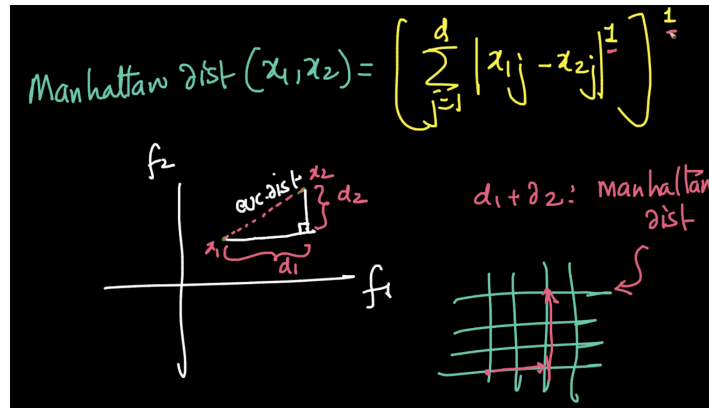 Manhattan dist (x₁, x₂) = ( ∑ⱼ₌₁ᵈ |x₁ⱼ - x₂ⱼ|¹ )¹
f₂
euc. dist
x₂
d₂
x₁
d₁
f₁
d₁ + d₂ : manhattan
dist